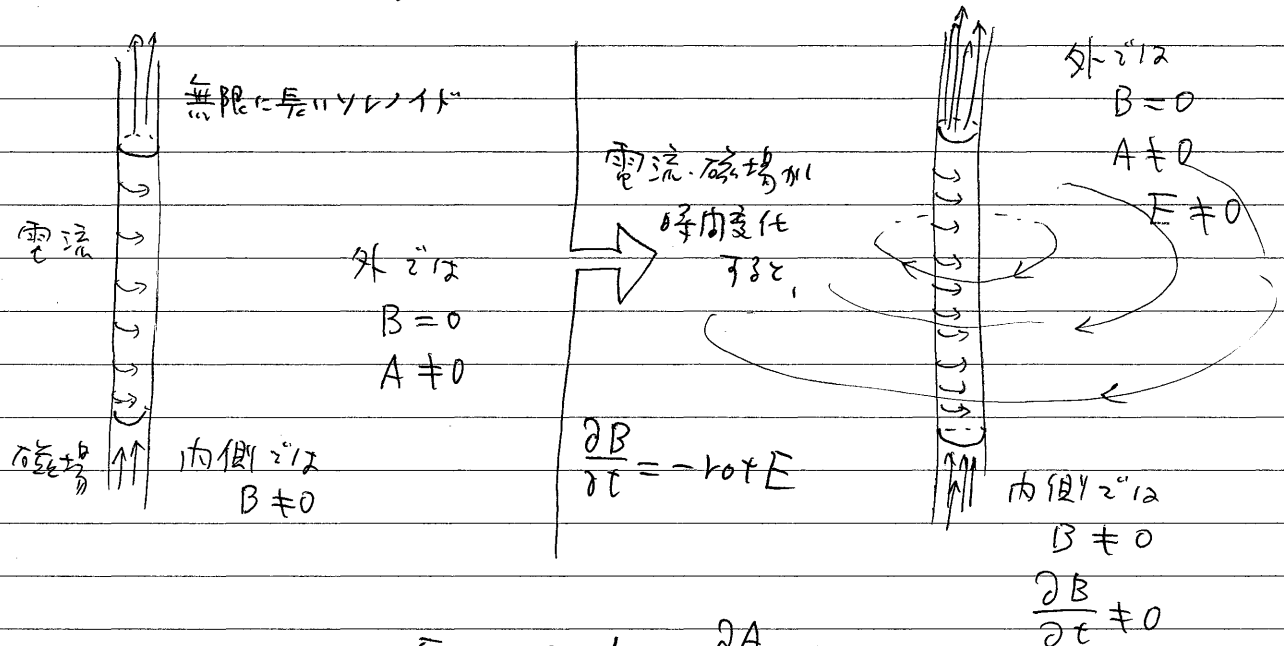 無限に長いソレノイド
電流
外では
B = 0
A ≠ 0
磁場
内側では
B ≠ 0
電流・磁場が
時間変化
すると、
∂B/∂t = -rot E
外では
B = 0
A ≠ 0
E ≠ 0
内側では
B ≠ 0
∂B/∂t ≠ 0
∂A